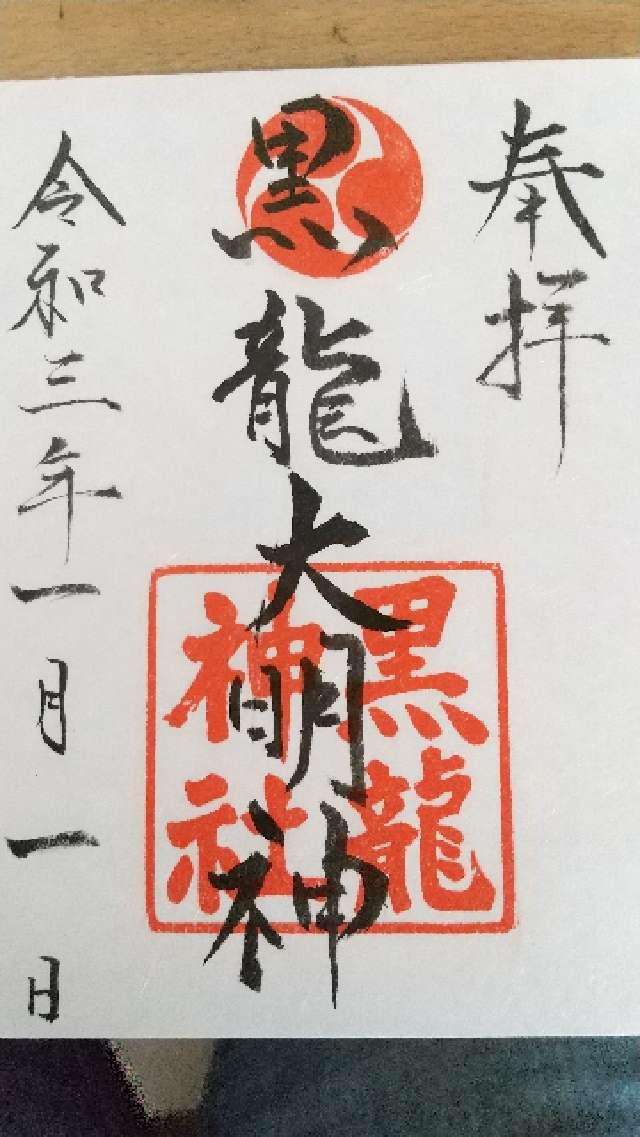 奉拝
黒龍大明神
黒龍
神社
令和三年一月一日